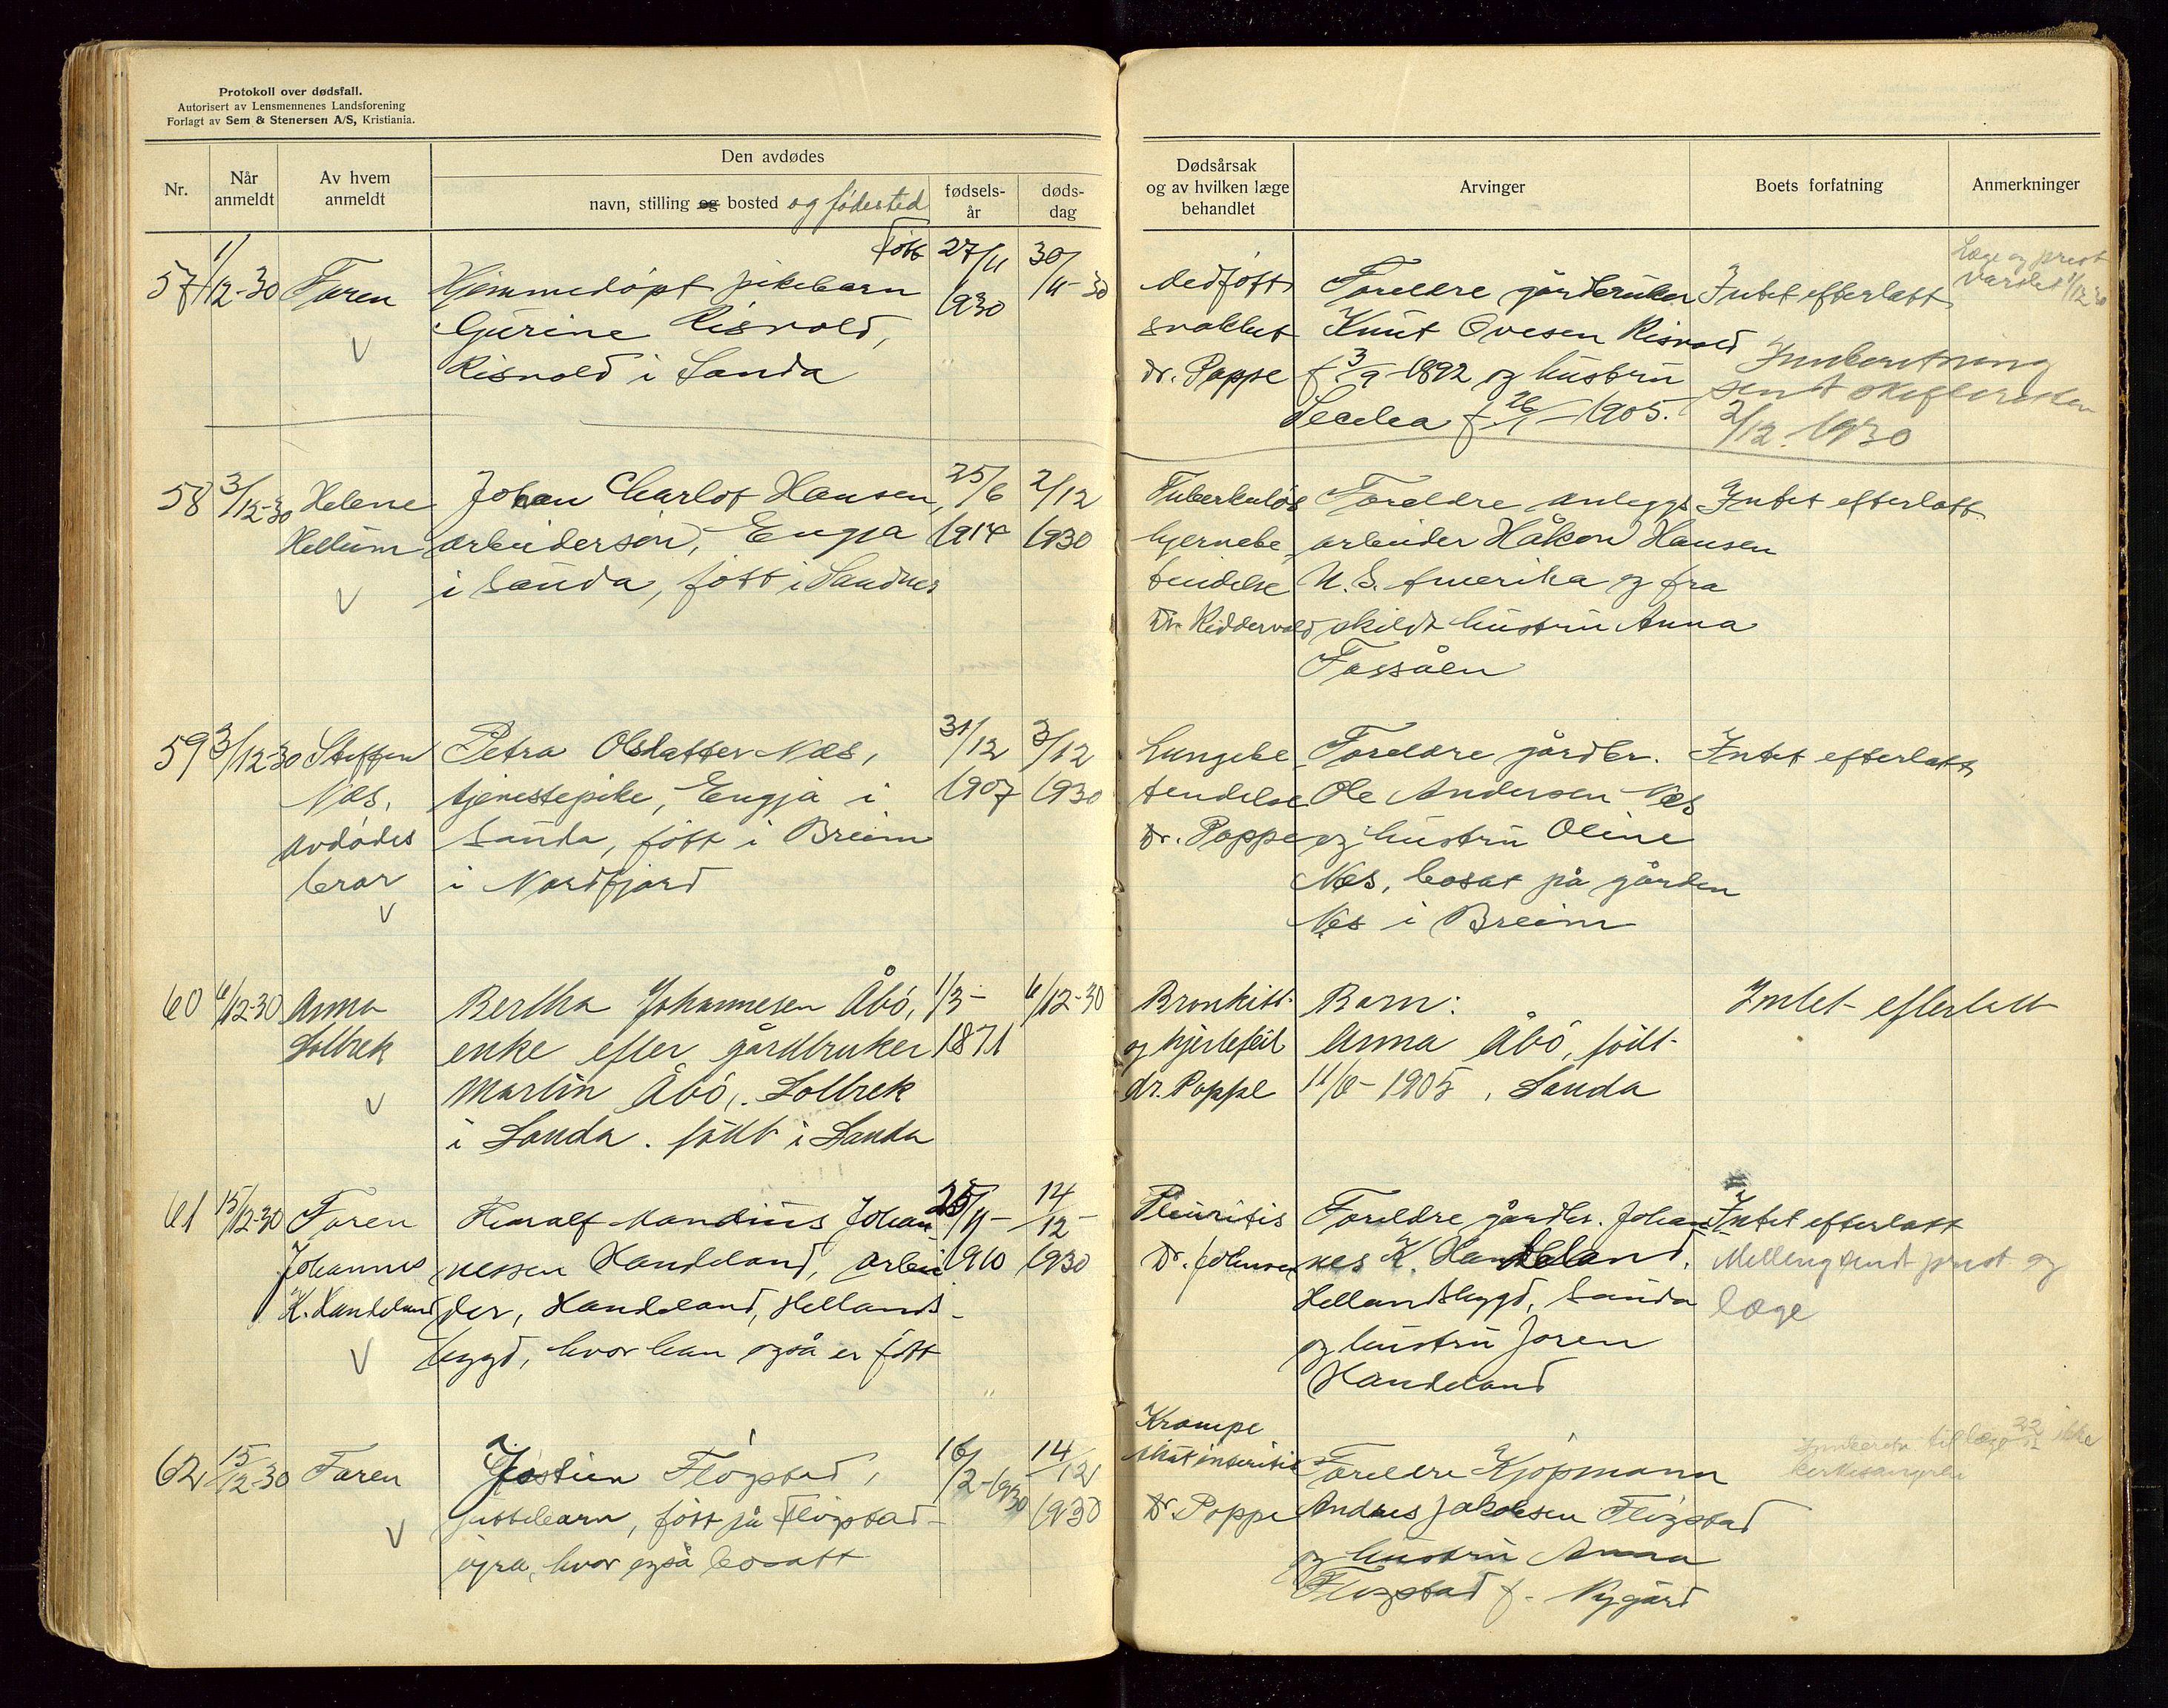 Protokoll over dødsfall.
Autorisert av Lensmennenes Landsforening
Forlagt av Sem & Stenersen A/S, Kristiania.
Nr.
Når anmeldt
Av hvem anmeldt
Den avdødes
navn, stilling og bosted og födested
fødsels-år
døds-dag
Dødsårsak og av hvilken læge behandlet
Arvinger
Boets forfatning
Anmerkninger
57
1/12-30
Faren
Född
Hjemmedöpt pikebarn
Gurine Risvold,
Risvold i Sauda
27/11
1930
30/11-30
medfött
svakhet
dr. Poppe
Foreldre gårdbruker
Knut Ovesen Risvold
f 3/9-1892 og hustru
Secelea f 26/1-1905.
Intet efterlatt
Innberetning
sendt skifteretten
2/12. 1930
Læge og prest
varslet 1/12 30
58
3/12-30
Helene
Hellum
Johan Charlot Hansen,
arbeidersön, Engja
i Sauda, fött i Sandnes
25/6
1914
2/12
1930
Tuberkulös
hjernebe-
tendelse
Dr. Riddervold
Foreldre anleggs
arbeider Håkon Hansen
U. S. Amerika og fra
skildt hustru Anna
Fossåen
Intet efterlatt
59
3/12-30
Steffen
Næs,
avdödes
bror
Petra Olsdatter Næs,
tjenestepike, Engja i
Sauda, fött i Breim
i Nordfjord
31/12
1907
3/12
1930
Lungebe-
tendelse
Dr. Poppe
Foreldre gårdbr.
Ole Andersen Næs
og hustru Oline
Næs, bosat på gården
Næs i Breim
Intet efterlatt
60
6/12-30
Anna
Solbrek
Bertha Johannesen Åbö,
enke efter gårdbruker
Martin Åbö, Solbrek
i Sauda. födt i Sauda
1/3-
1871
6/12-30
Bronkitt
og hjertefeil
dr. Poppe
Barn:
Anna Åbö, födt
11/6-1905, Sauda
Intet efterlatt
61
15/12-30
Faren
Johannes
K. Handeland
Mandius Johan-
nessen Handeland, arbei
der, Handeland, Hellands-
bygd, hvor han også er fött
25/11-
1910
14/12-
1930
Pleuritis
Dr. Johnsen
Foreldre gårdbr. Johan-
nes K. Handeland,
Hellandsbygd, Sauda
og hustru Joren
Handeland
Intet efterlatt
Melding sendt prest og
læge
62
15/12-30
Faren
Jostein Flögstad,
guttebarn, fött på Flögstad-
öyra, hvor også bosatt
16/2-1930
14/12
1930
Krampe
Dr. Poppe
Foreldre Kjöpmann
Andreas Jakobsen Flögstad
og hustru Anna
Flögstad f. Nygård
til læge 22/12 ikke